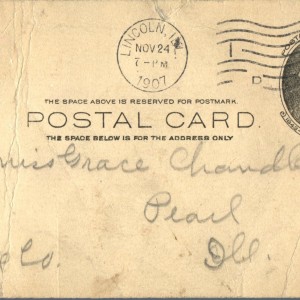 LINCOLN, ILL.
NOV 24
7-PM
1907
D
THE SPACE ABOVE IS RESERVED FOR POSTMARK.
POSTAL CARD.
THE SPACE BELOW IS FOR THE ADDRESS ONLY.
Miss Grace Chandl
Pearl
Co. Ill.